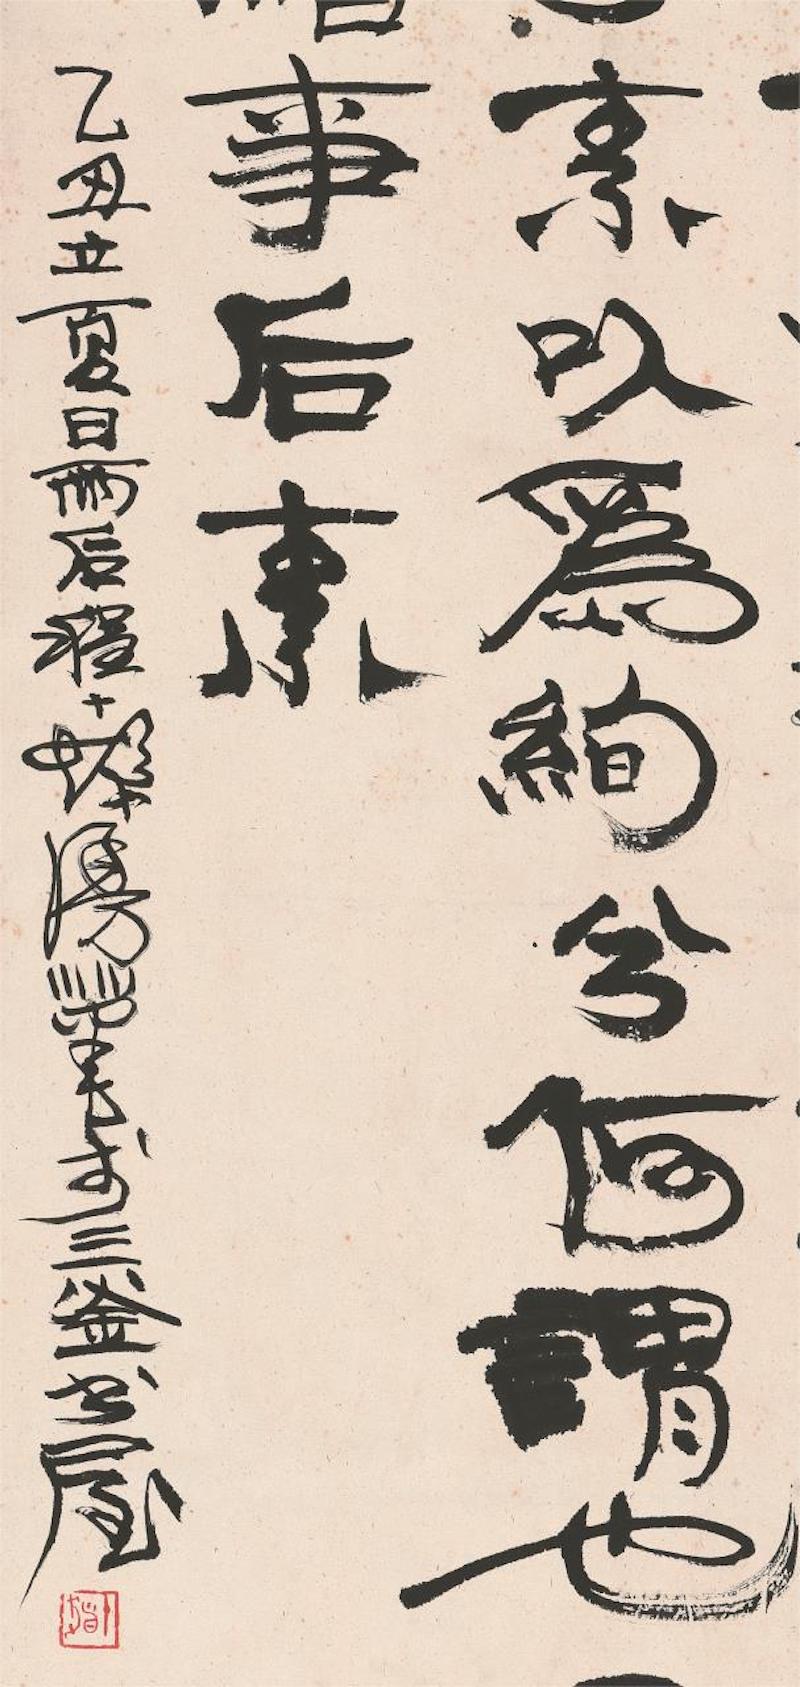 素以爲絢兮何謂也
事后素
乙丑立夏日雨后程十髮漫筆於三釜書屋